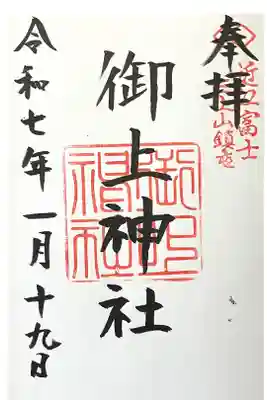 奉拝
近江富士
山鎮座
御上神社
令和七年一月十九日